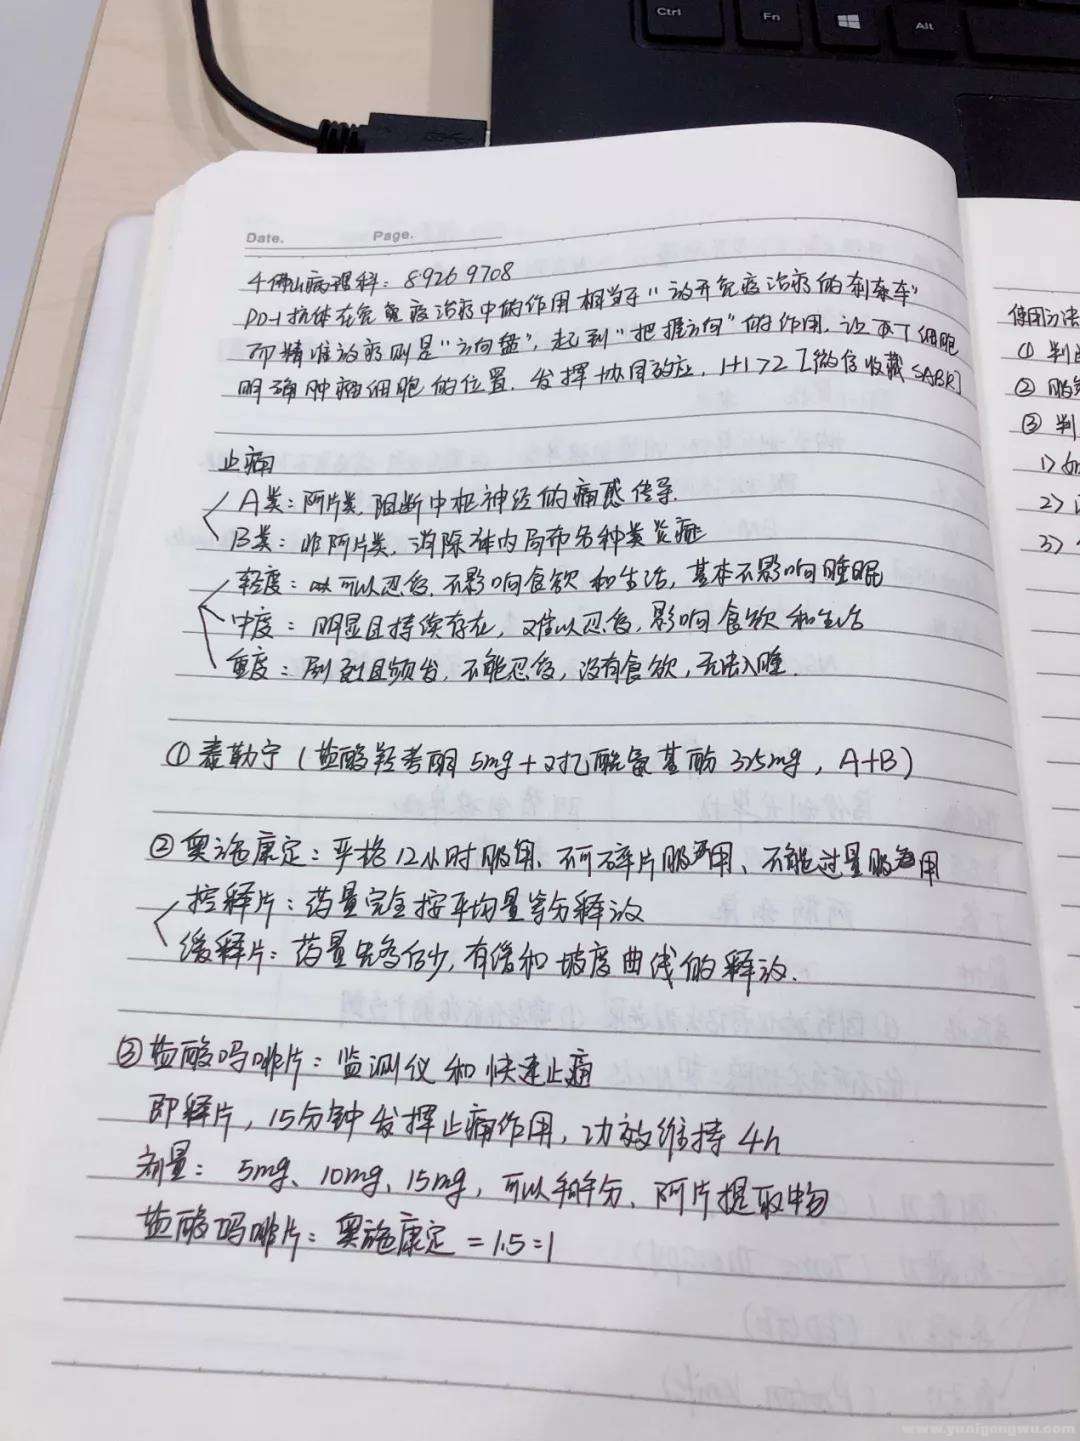 Ctrl
Fn
Alt
Date.
Page.
千佛山病理科：89269708
PD-1抗体在免疫治疗中的作用相当于"放开免疫治疗的刹车"
而精准放疗则是"方向盘"，起到"把握方向"的作用，让 T细胞
明确肿瘤细胞的位置，发挥协同效应，1+1>2【微信收藏SABR】
止痛
A类：阿片类，阻断中枢神经的痛感传导.
B类：非阿片类，消除体内局部各种类炎症
轻度：可以忍受，不影响食欲和生活，基本不影响睡眠
中度：明显且持续存在，难以忍受，影响食欲和生活
重度：剧烈且频发，不能忍受，没有食欲，无法入睡.
①泰勒宁（盐酸羟考酮5mg+对乙酰氨基酚325mg，A+B）
②奥施康定：严格12小时服用、不可碎片服用、不能过量服用
控释片：药量完全按平均量等分释放
缓释片：药量先多后少，有缓和坡度曲线的释放.
③盐酸吗啡片：监测仪和快速止痛
即释片，15分钟发挥止痛作用，功效维持4h
剂量：5mg、10mg、15mg，可以掰分、阿片提取物
盐酸吗啡片：奥施康定=1.5:1
使用方法
①判
②服
③判
1>如
2>
3>
www.yunigongwu.com